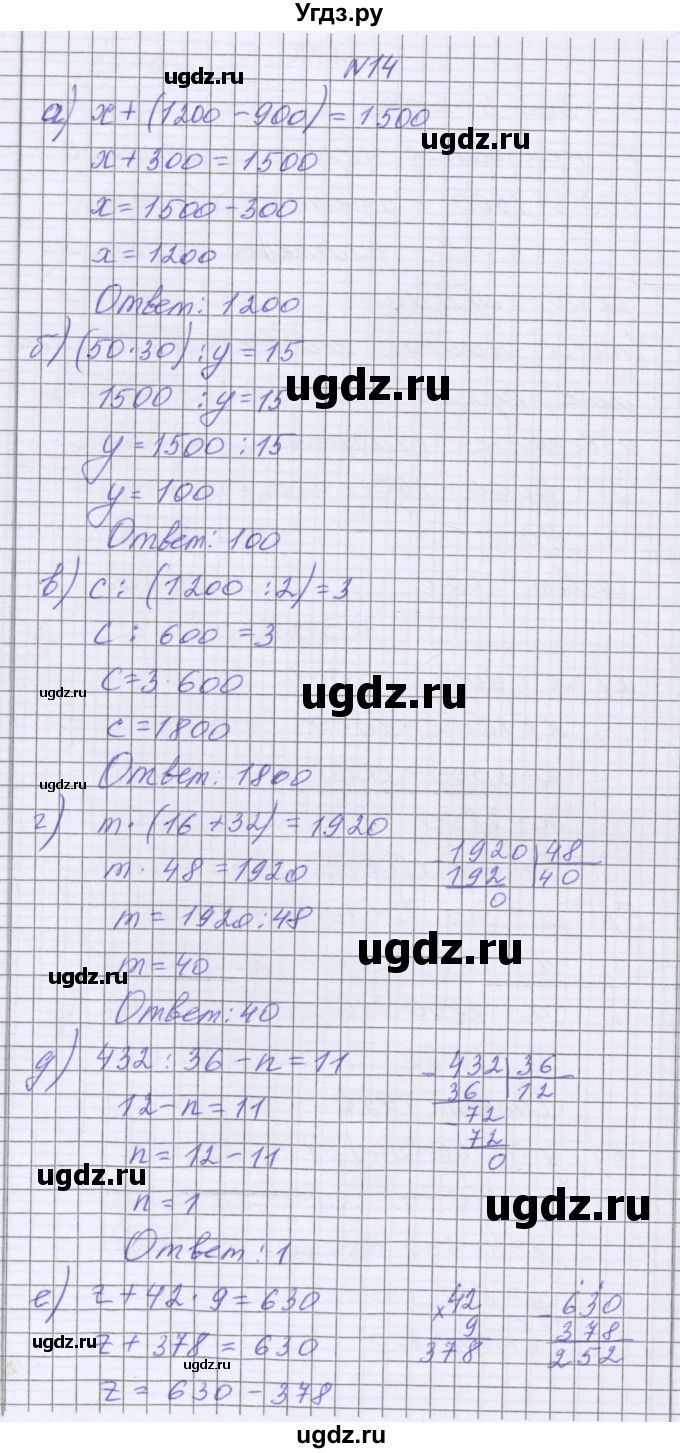 Угдз.ру
N14
ugdz.ru
а) x + (1200 - 900) = 1500
ugdz.ru
x + 300 = 1500
x = 1500 - 300
x = 1200
Ответ: 1200
б) (50·30) : y = 15
ugdz.ru
1500 : y = 15
y = 1500 : 15
y = 100
Ответ: 100
в) c : (1200 : 2) = 3
c : 600 = 3
ugdz.ru
c = 3·600
ugdz.ru
c = 1800
ugdz.ru
Ответ: 1800
г) m·(16 + 32) = 1920
1920 | 48
m·48 = 1920
192 | 40
0
m = 1920 : 48
ugdz.ru
m = 40
ugdz.ru
Ответ: 40
д) 432 : 36 - n = 11
- 432 | 36
36 | 12
12 - n = 11
- 72
72
0
n = 12 - 11
ugdz.ru
n = 1
ugdz.ru
Ответ: 1
е) z + 42·9 = 630
× 42
9
378
- 630
378
252
ugdz.ru
z + 378 = 630
ugdz.ru
z = 630 - 378
ugdz.ru